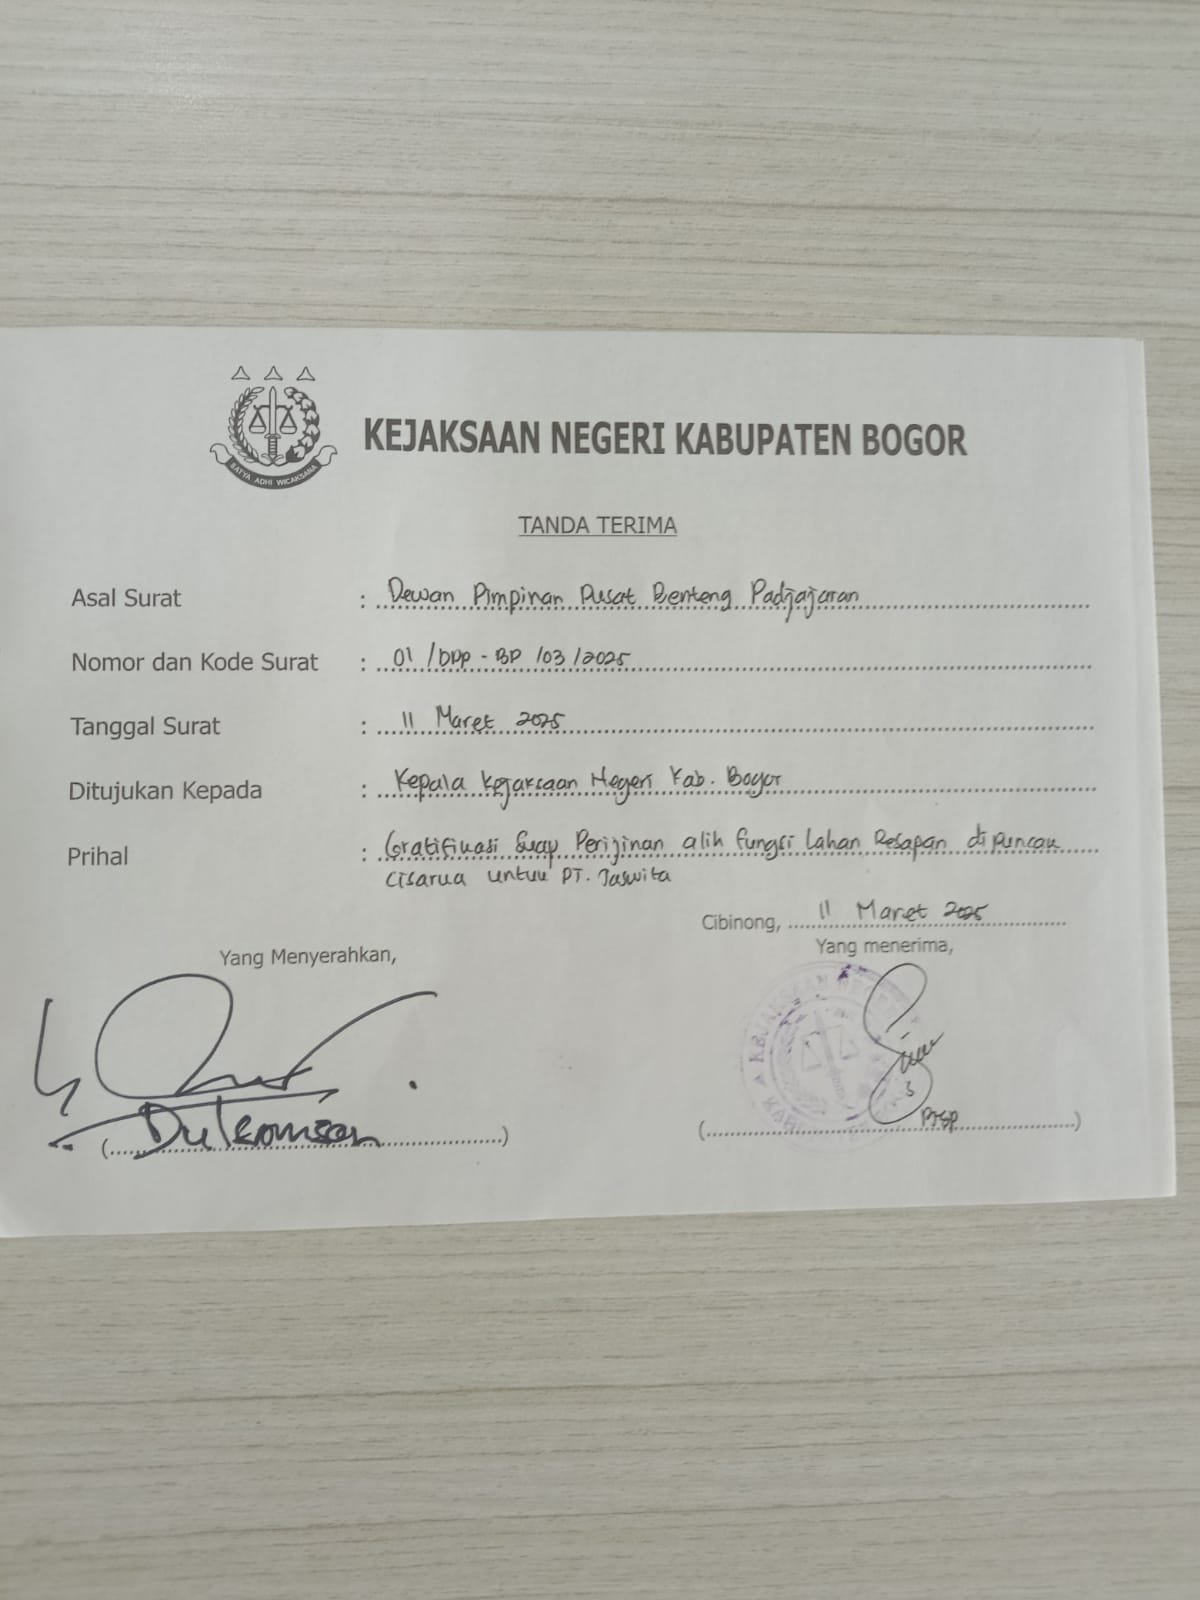 SATYA ADHI WICAKSANA
KEJAKSAAN NEGERI KABUPATEN BOGOR
TANDA TERIMA
Asal Surat : Dewan Pimpinan Pusat Benteng Padjajaran
Nomor dan Kode Surat : 01 /DPP - BP /03 /2025
Tanggal Surat : 11 Maret 2025
Ditujukan Kepada : Kepala Kejaksaan Negeri Kab. Bogor
Prihal : Gratifikasi Suap Perijinan alih fungsi Lahan Resapan dipuncak
Cisarua untuk PT. Jaswita
Cibinong, 11 Maret 2025
Yang Menyerahkan,
Yang menerima,
KEJAKSAAN
PTSP